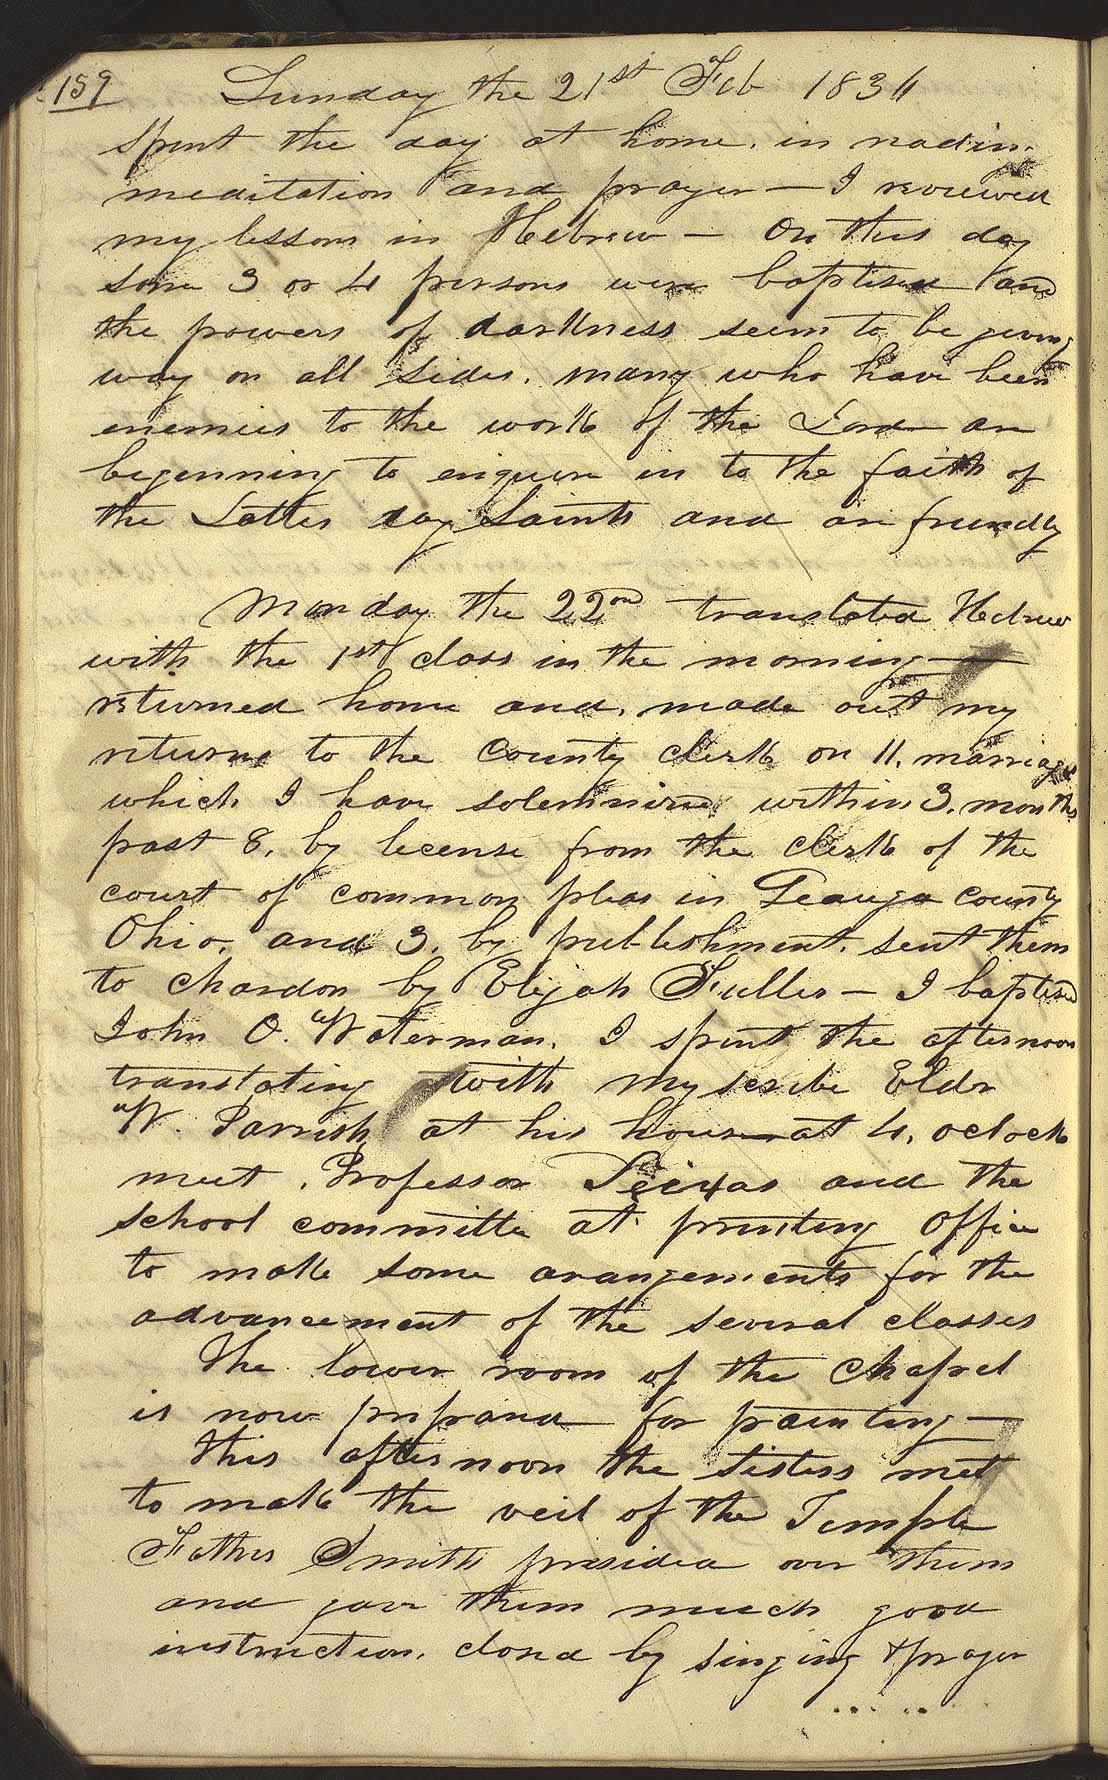 159
Sunday the 21st Feb 1836
spent the day at home, in reading
meditation and prayer — I reviewed
my lessons in Hebrew — On this day
some 3 or 4 persons were baptised and
the powers of darkness seem to be giving
way on all sides. many who have been
enemies to the work of the Lord are
beginning to enquire in to the faith of
the Latter day Saints and are friendly
Monday the 22nd translated Hebrew
with the 1st class in the morning —
returned home and, made out my
returns to the County clerk on 11, marriages
which I have solemnized within 3, months
past 8, by license from the clerk of the
court of common pleas in Geauga county
Ohio, and 3, by publishment, sent them
to Chardon by Elijah Fuller — I baptised
John O. Waterman. I spent the afternoon
translating with my scribe Eldr
W. Parrish, at his house at 4, oclock
meet, Professor Seixas and the
school committe at printing office
to make some arangements for the
advancement of the several classes
The lower room of the Chapel
is now prepared for painting —
This afternoon the sisters met
to make the veil of the Temple
Father Smith presided over them
and gave them much good
instruction, closed by singing & prayer